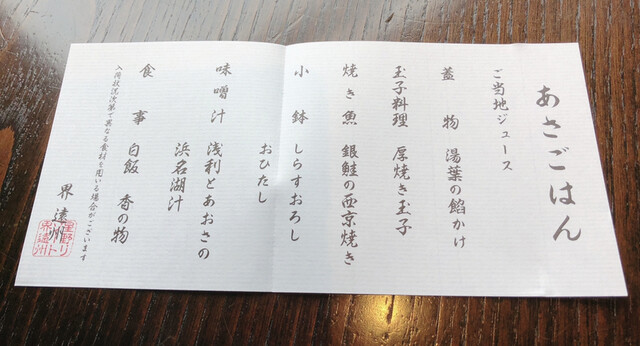 あさごはん
ご当地ジュース
蓋物 湯葉の餡かけ
玉子料理 厚焼き玉子
焼き魚 銀鮭の西京焼き
小鉢 しらすおろし
おひたし
味噌汁 浅利とあおさの
浜名湖汁
食事 白飯 香の物
入荷状況次第で異なる素材を用いる場合がございます
界 遠州
星野リ
ト
界遠州